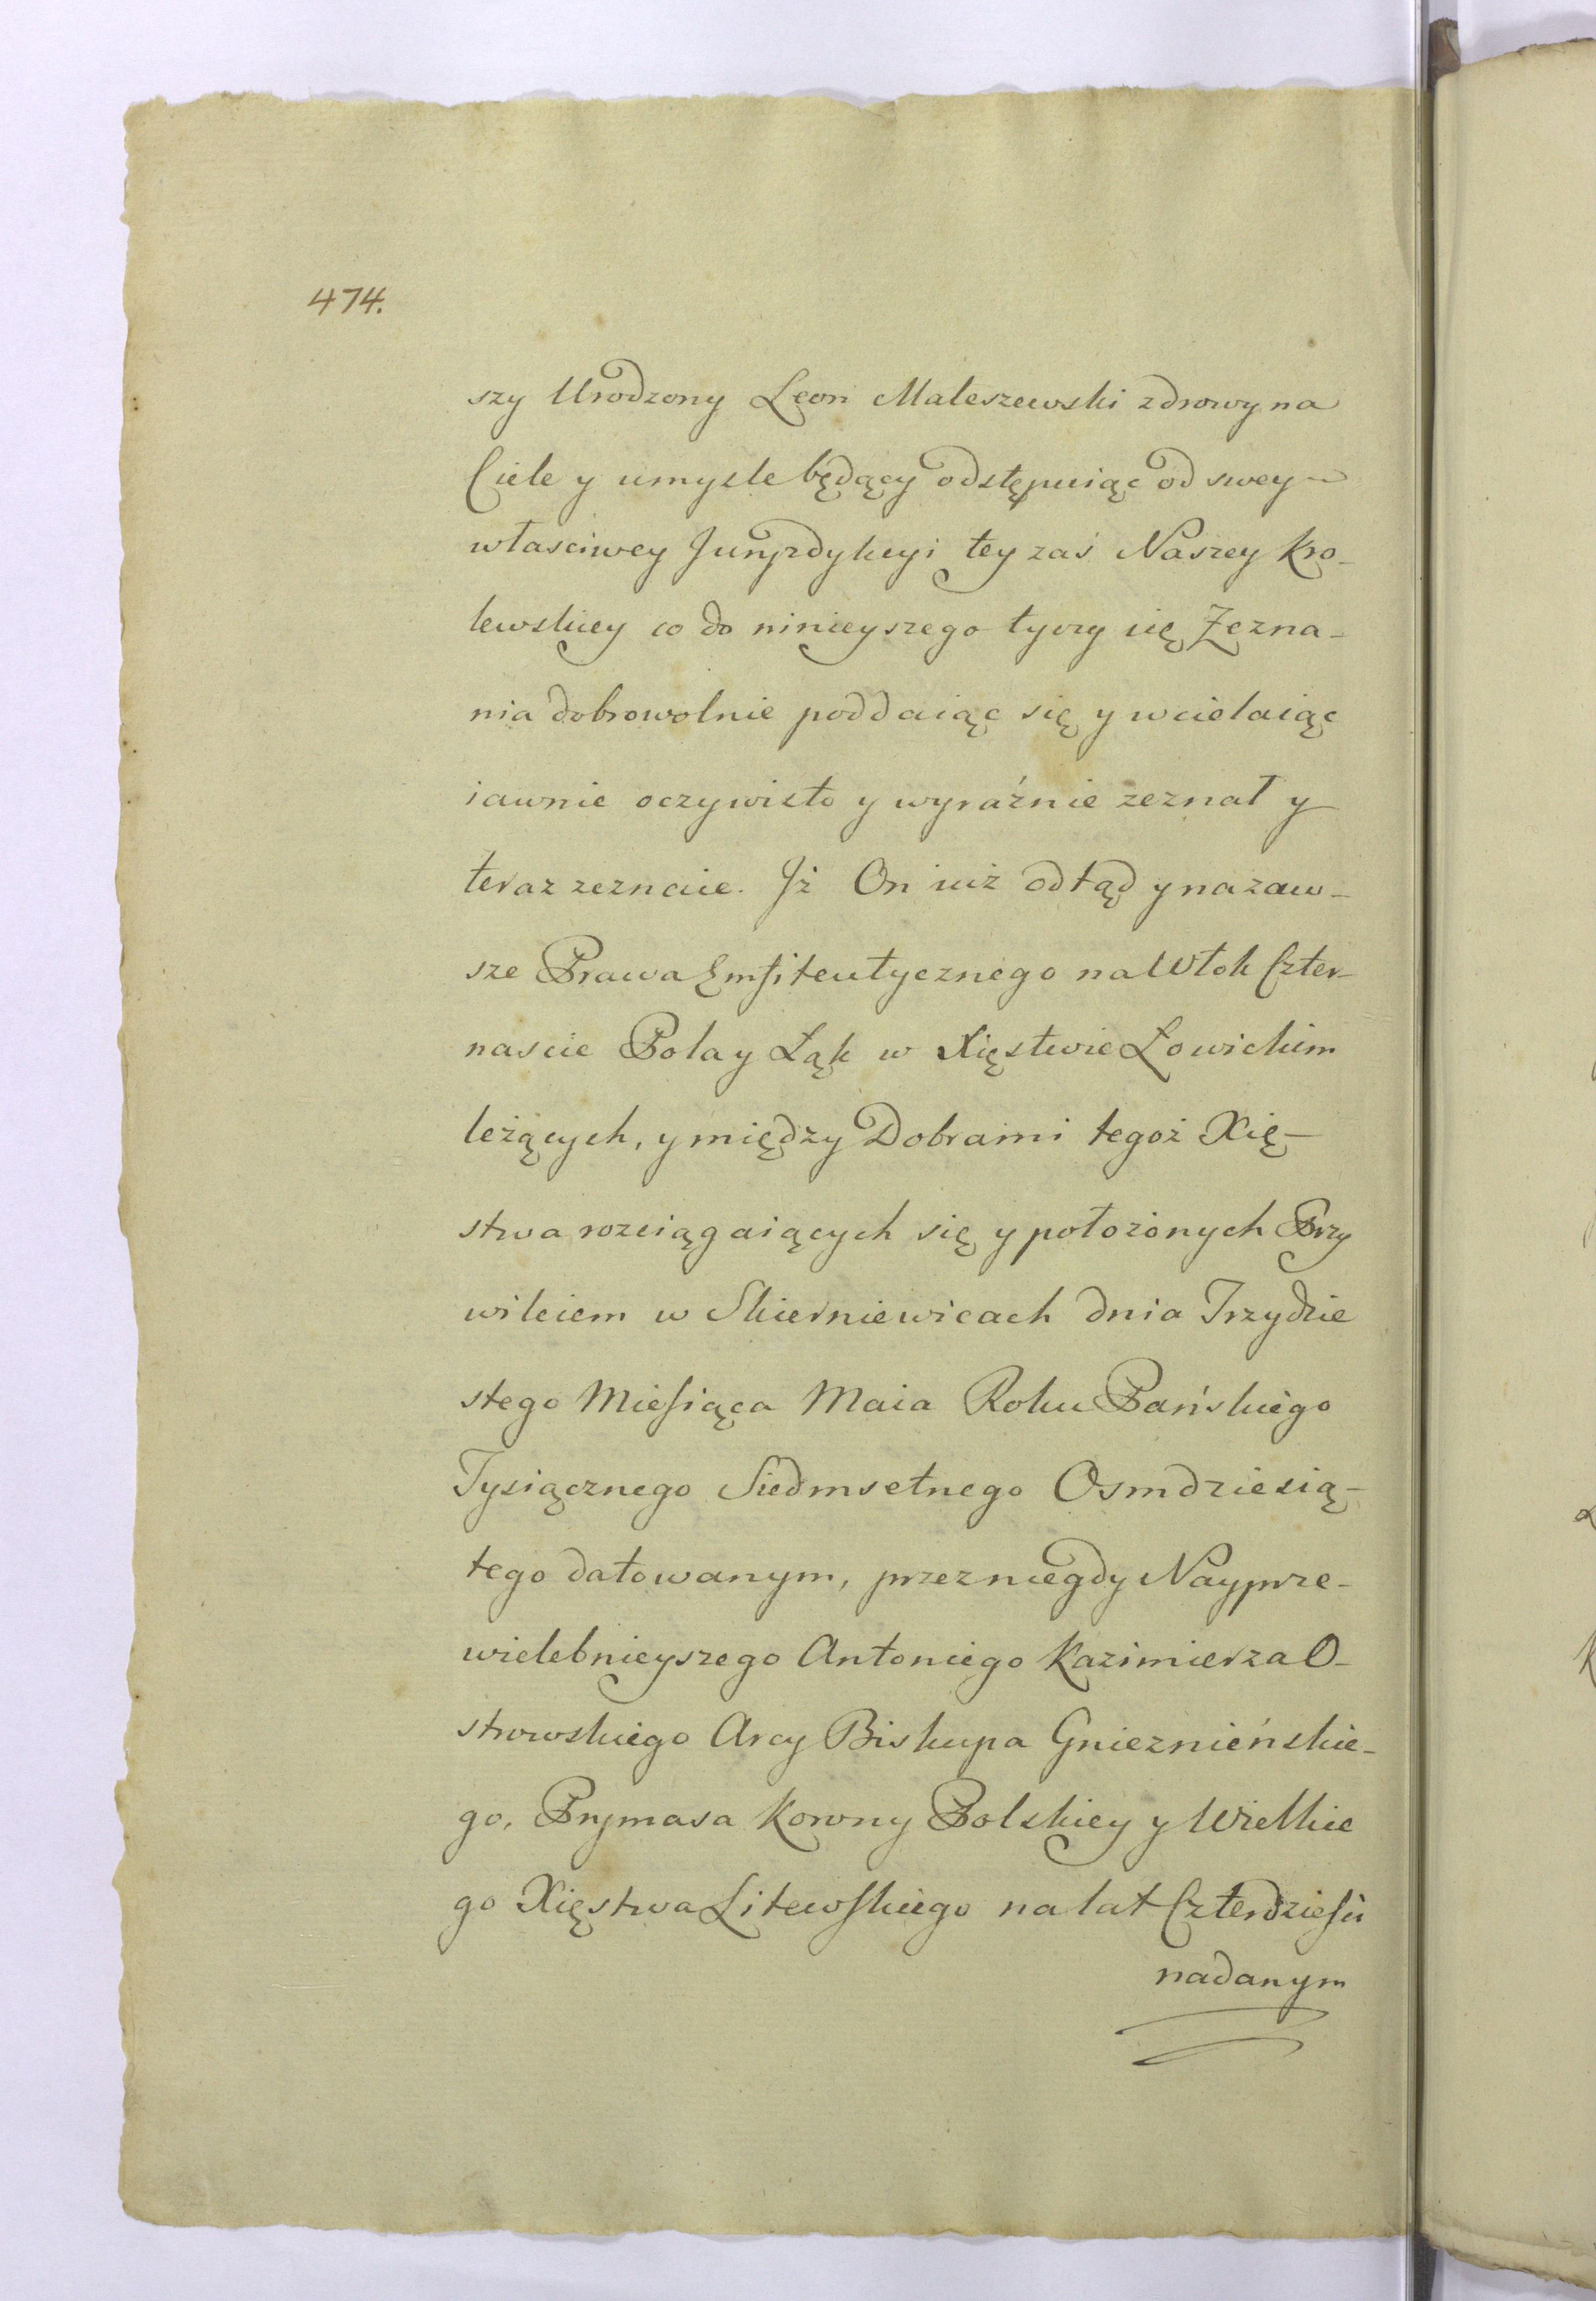 474.
szy Urodzony Leon Maleszewski zdrowy na
Ciele y umysle będący odstępuiąc od swey
własciwey Juryzdykcyi tey zaś Naszey Kro-
lewskiey co do ninieyszego tyczy się Zezna-
nia dobrowolnie poddaiąc się y wcielaiąc
iawnie oczywisto y wyraźnie zeznał y
teraz zeznaie. Jż On iuż odtąd y nazaw-
sze Prawa Emfiteutycznego na Włok Czter-
nascie Pola y Łąk w Xięstwie Łowickim
leżących, y między Dobrami tegoż Xię-
stwa rozciągaiących się y położonych Przy
wileiem w Skierniewicach dnia Trzydzie
stego Miesiąca Maia Roku Pańskiego
Tysiącznego Siedmsetnego Osmdziesią-
tego datowanym, przez niegdy Nayprze-
wielebnieyszego Antoniego Kazimierza O-
strowskiego Arcy Biskupa Gnieznieńskie-
go, Prymasa Korony Polskiey y Wielkie
go Xięstwa Litewskiego na lat Czterdzieści
nadanym